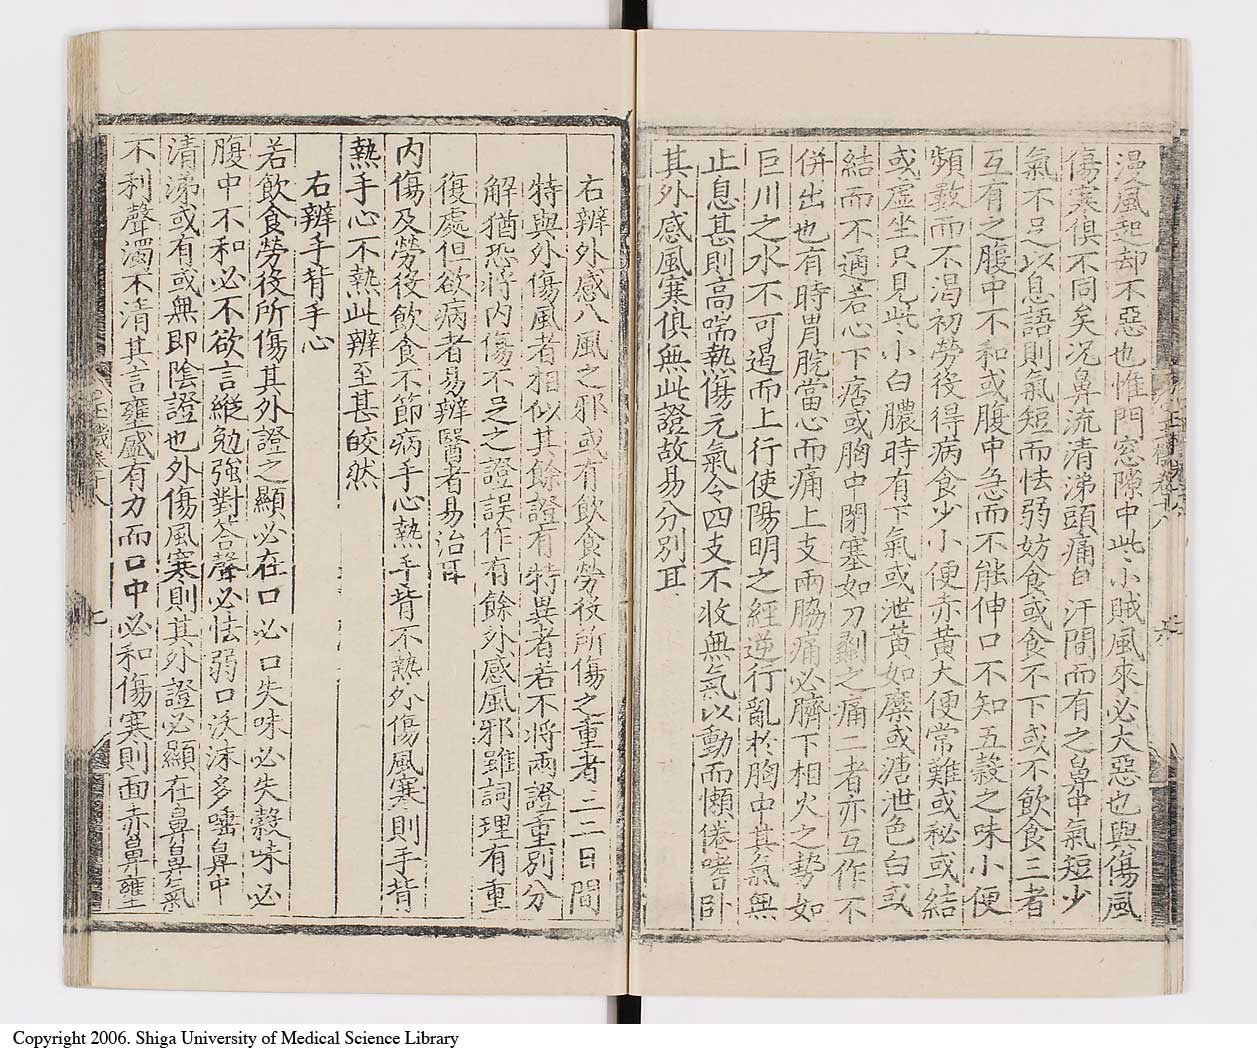 漫風起却不惡也惟門窓隙中此小賊風來必大惡也與傷風
傷寒俱不同矣况鼻流清涕頭痛自汗間而有之鼻中氣短少
氣不足以息語則氣短而怯弱妨食或食不下或不飲食三者
互有之腹中不和或腹中急而不能伸口不知五穀之味小便
頻數而不渴初勞役得病食少小便赤黃大便常難或秘或結
或虛坐只見此小白膿時有下氣或泄黃如糜或溏泄色白或
結而不通若心下痞或胸中閉塞如刀劙之痛二者亦互作不
併出也有時胃脘當心而痛上支兩脇痛必臍下相火之勢如
巨川之水不可遏而上行使陽明之經逆行亂於胸中其氣無
止息甚則高喘熱傷元氣令四支不收無氣以動而懶倦嗜卧
其外感風寒俱無此證故易分別耳
右辨外感八風之邪或有飲食勞役所傷之重者二三日間
特與外傷風者相似其餘證有特異者若不將兩證重別分
解猶恐將內傷不足之證誤作有餘外感風邪雖詞理有重
復處但欲病者易辨醫者易治耳
內傷及勞役飲食不節病手心熱手背不熱外傷風寒則手背
熱手心不熱此辨至甚皎然
右辨手背手心
若飲食勞役所傷其外證之顯必在口必口失味必失穀味必
腹中不和必不欲言縱勉強對答聲必怯弱口沃沫多唾鼻中
清涕或有或無即陰證也外傷風寒則其外證必顯在鼻鼻氣
不利聲濁不清其言壅盛有力而口中必和傷寒則面赤鼻壅
Copyright 2006. Shiga University of Medical Science Library